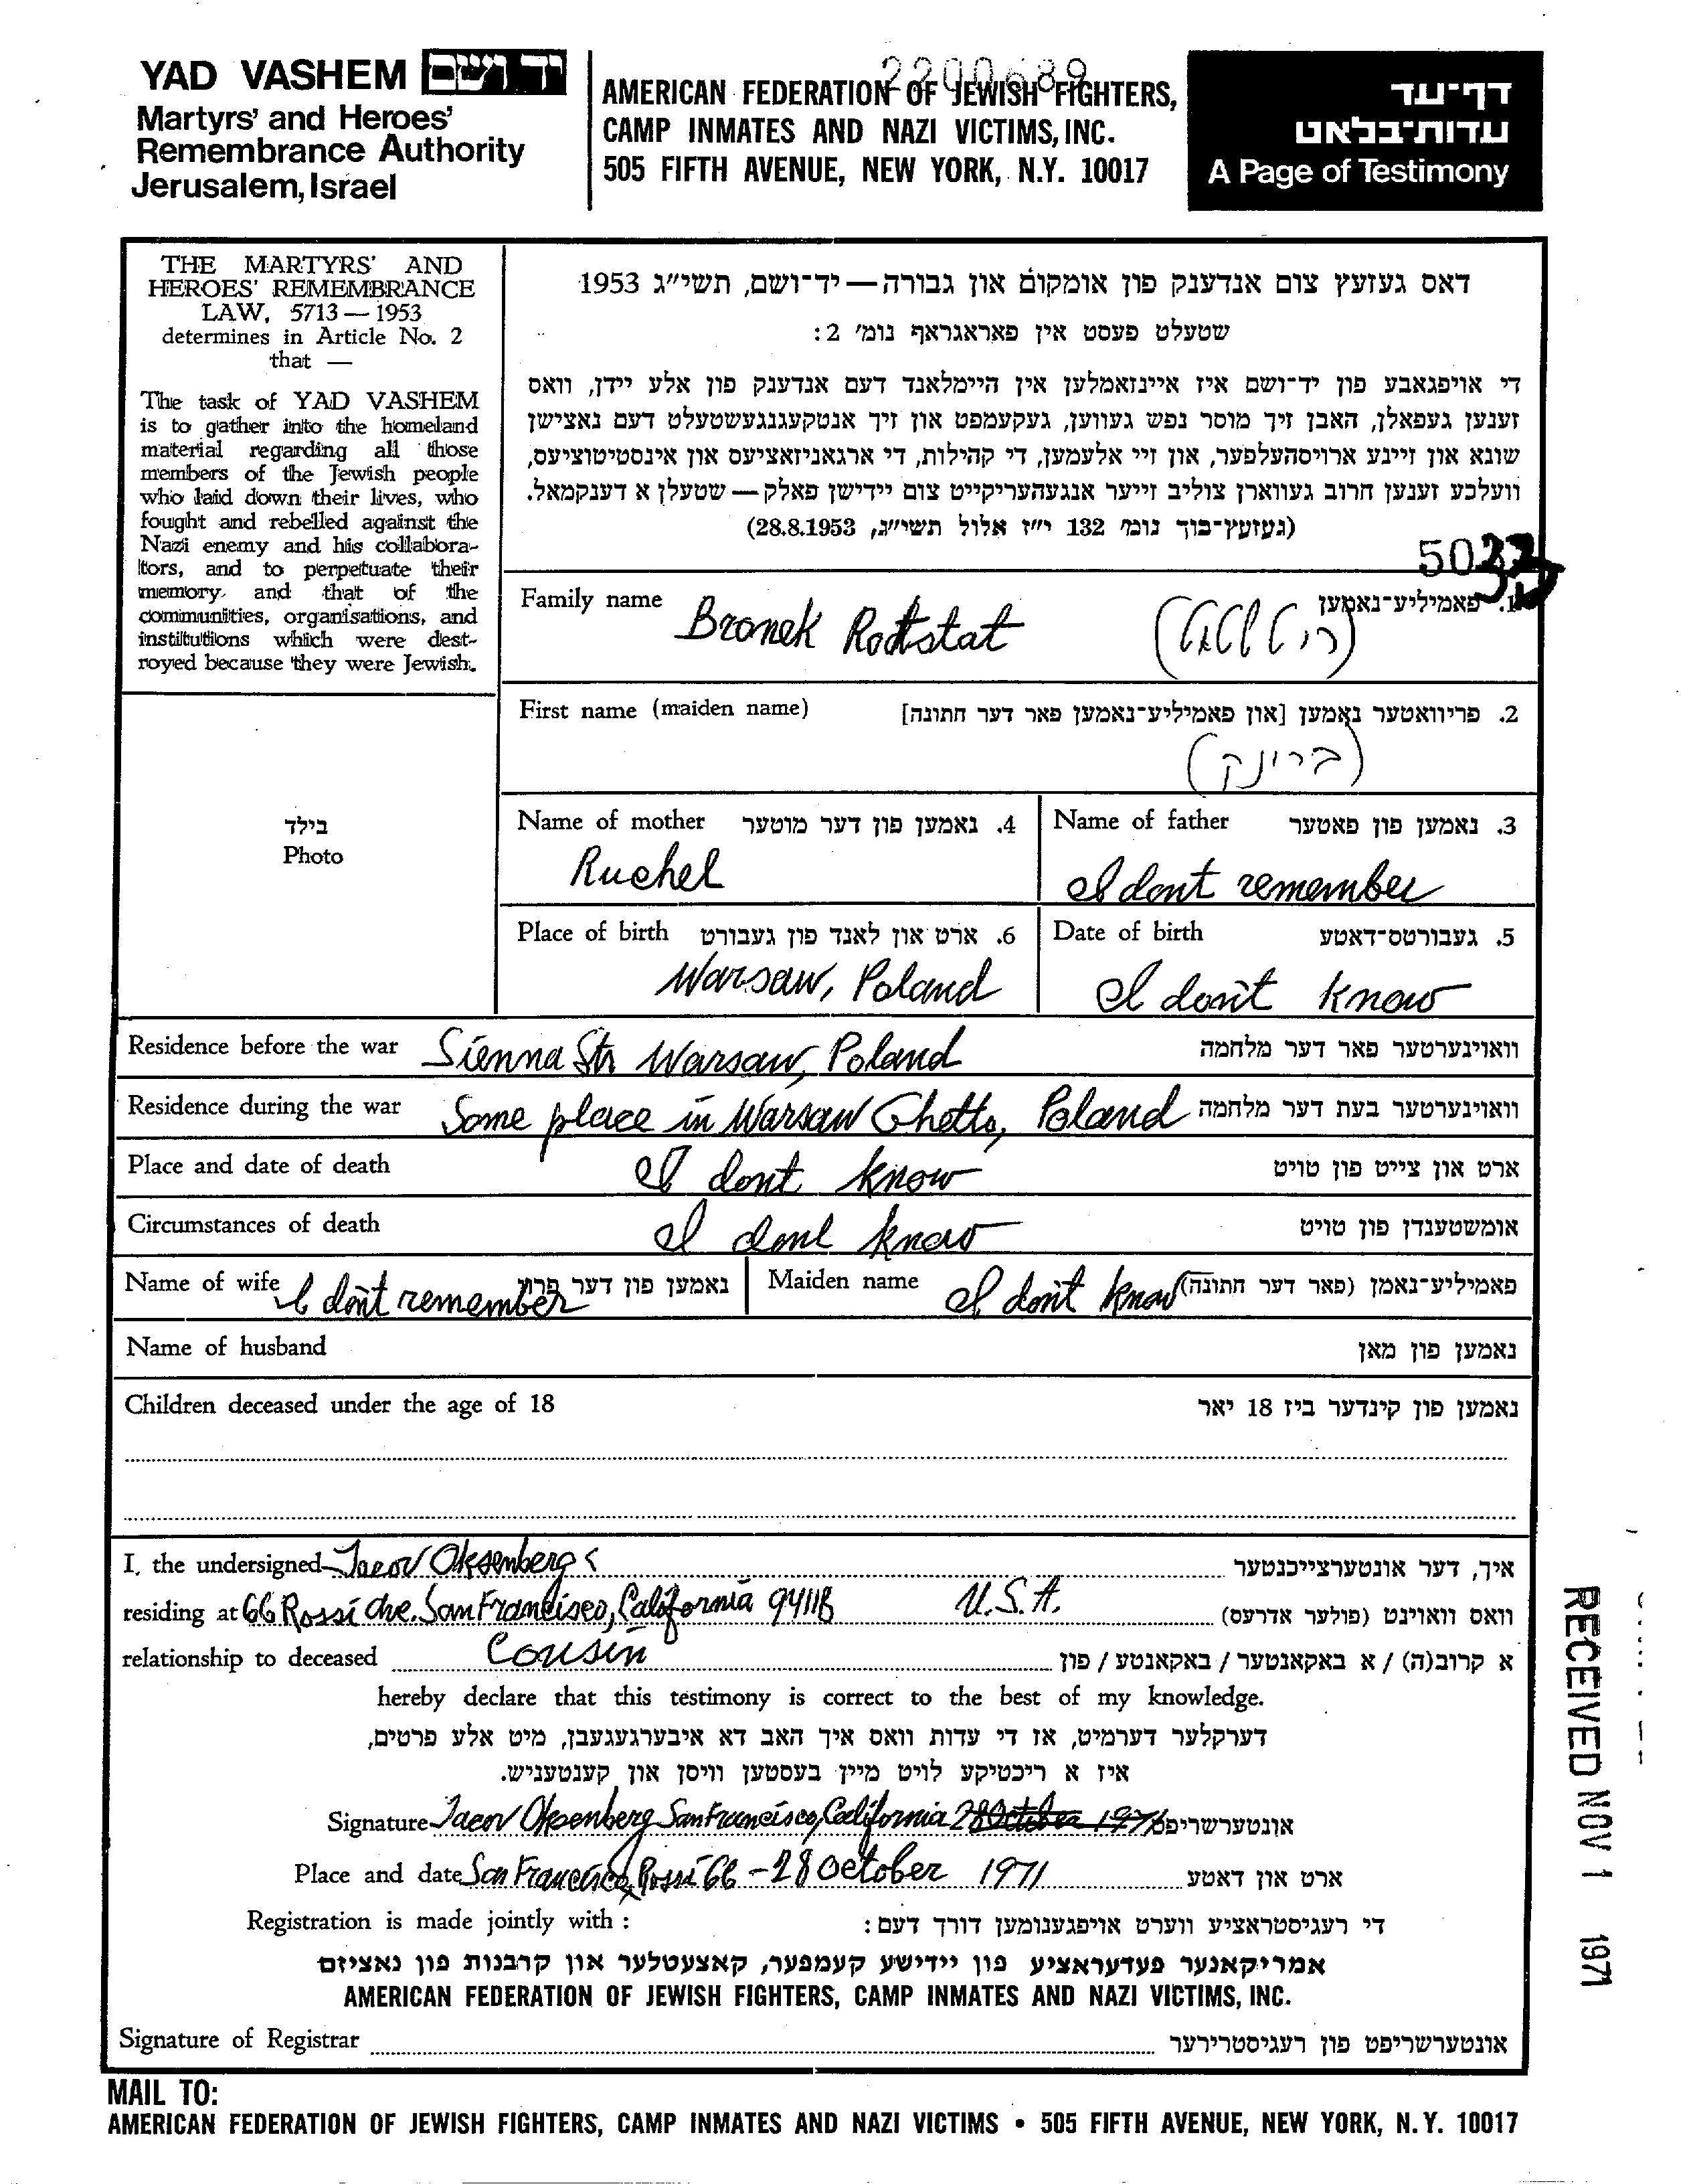 YAD VASHEM יד ושם
Martyrs' and Heroes'
Remembrance Authority
Jerusalem, Israel
2200689
AMERICAN FEDERATION OF JEWISH FIGHTERS,
CAMP INMATES AND NAZI VICTIMS, INC.
505 FIFTH AVENUE, NEW YORK, N.Y. 10017
דף־עד
עדות־בלאט
A Page of Testimony
THE MARTYRS' AND
HEROES' REMEMBRANCE
LAW, 5713 — 1953
determines in Article No. 2
that —
The task of YAD VASHEM
is to gather into the homeland
material regarding all those
members of the Jewish people
who laid down their lives, who
fought and rebelled against the
Nazi enemy and his collabora-
tors, and to perpetuate their
memory and that of the
communities, organisations, and
institutions which were dest-
royed because they were Jewish.
דאס געזעץ צום אנדענק פון אומקום און גבורה — יד־ושם, תשי״ג 1953
שטעלט פעסט אין פאראגראף נומ׳ 2:
די אויפגאבע פון יד־ושם איז איינזאמלען אין היימלאנד דעם אנדענק פון אלע יידן, וואס
זענען געפאלן, האבן זיך מוסר נפש געווען, געקעמפט און זיך אנטקעגנגעשטעלט דעם נאצישן
שונא און זיינע ארויסהעלפער, און זיי אלעמען, די קהילות, די ארגאניזאציעס און אינסטיטוציעס,
וועלכע זענען חרוב געווארן צוליב זייער אנגעהעריקייט צום יידישן פאלק — שטעלן א דענקמאל.
(געזעץ־בוך נומ׳ 132 י״ז אלול תשי״ג, 28.8.1953)
Family name Bronek Rotstat 1. פאמיליע־נאמען
First name (maiden name) 2. פריוואטער נאמען [און פאמיליע־נאמען פאר דער חתונה]
(ברונק)
Name of mother 4. נאמען פון דער מוטער
Ruchel
Name of father 3. נאמען פון פאטער
I dont remember
Place of birth 6. ארט און לאנד פון געבורט
Warsaw, Poland
Date of birth 5. געבורטס־דאטע
I don't know
בילד
Photo
Residence before the war Sienna Str Warsaw, Poland וואוינערטער פאר דער מלחמה
Residence during the war Some place in Warsaw Ghetto, Poland וואוינערטער בעת דער מלחמה
Place and date of death I dont know ארט און צייט פון טויט
Circumstances of death I dont know אומשטענדן פון טויט
Name of wife I don't remember נאמען פון דער פרוי Maiden name I don't know פאמיליע־נאמן (פאר דער חתונה)
Name of husband נאמען פון מאן
Children deceased under the age of 18 נאמען פון קינדער ביז 18 יאר
I, the undersigned Jacov Oksenberg איך, דער אונטערצייכנטער
residing at 66 Rossi Ave. San Francisco, California 94118 U.S.A. וואס וואוינט (פולער אדרעס)
relationship to deceased Cousin א קרוב(ה) / א באקאנטער / באקאנטע / פון
hereby declare that this testimony is correct to the best of my knowledge.
דערקלער דערמיט, אז די עדות וואס איך האב דא איבערגעגעבן, מיט אלע פרטים,
איז א ריכטיקע לויט מיין בעסטען וויסן און קענטעניש.
Signature Jacov Oksenberg San Francisco, California 28 October 1971 אונטערשריפט
Place and date San Francisco Rossi 66 - 28 October 1971 ארט און דאטע
Registration is made jointly with : די רעגיסטראציע ווערט אויפגענומען דורך דעם:
אמריקאנער פעדעראציע פון יידישע קעמפער, קאצעטלער און קרבנות פון נאציזם
AMERICAN FEDERATION OF JEWISH FIGHTERS, CAMP INMATES AND NAZI VICTIMS, INC.
Signature of Registrar אונטערשריפט פון רעגיסטרירער
MAIL TO:
AMERICAN FEDERATION OF JEWISH FIGHTERS, CAMP INMATES AND NAZI VICTIMS • 505 FIFTH AVENUE, NEW YORK, N.Y. 10017
RECEIVED NOV 1 1971